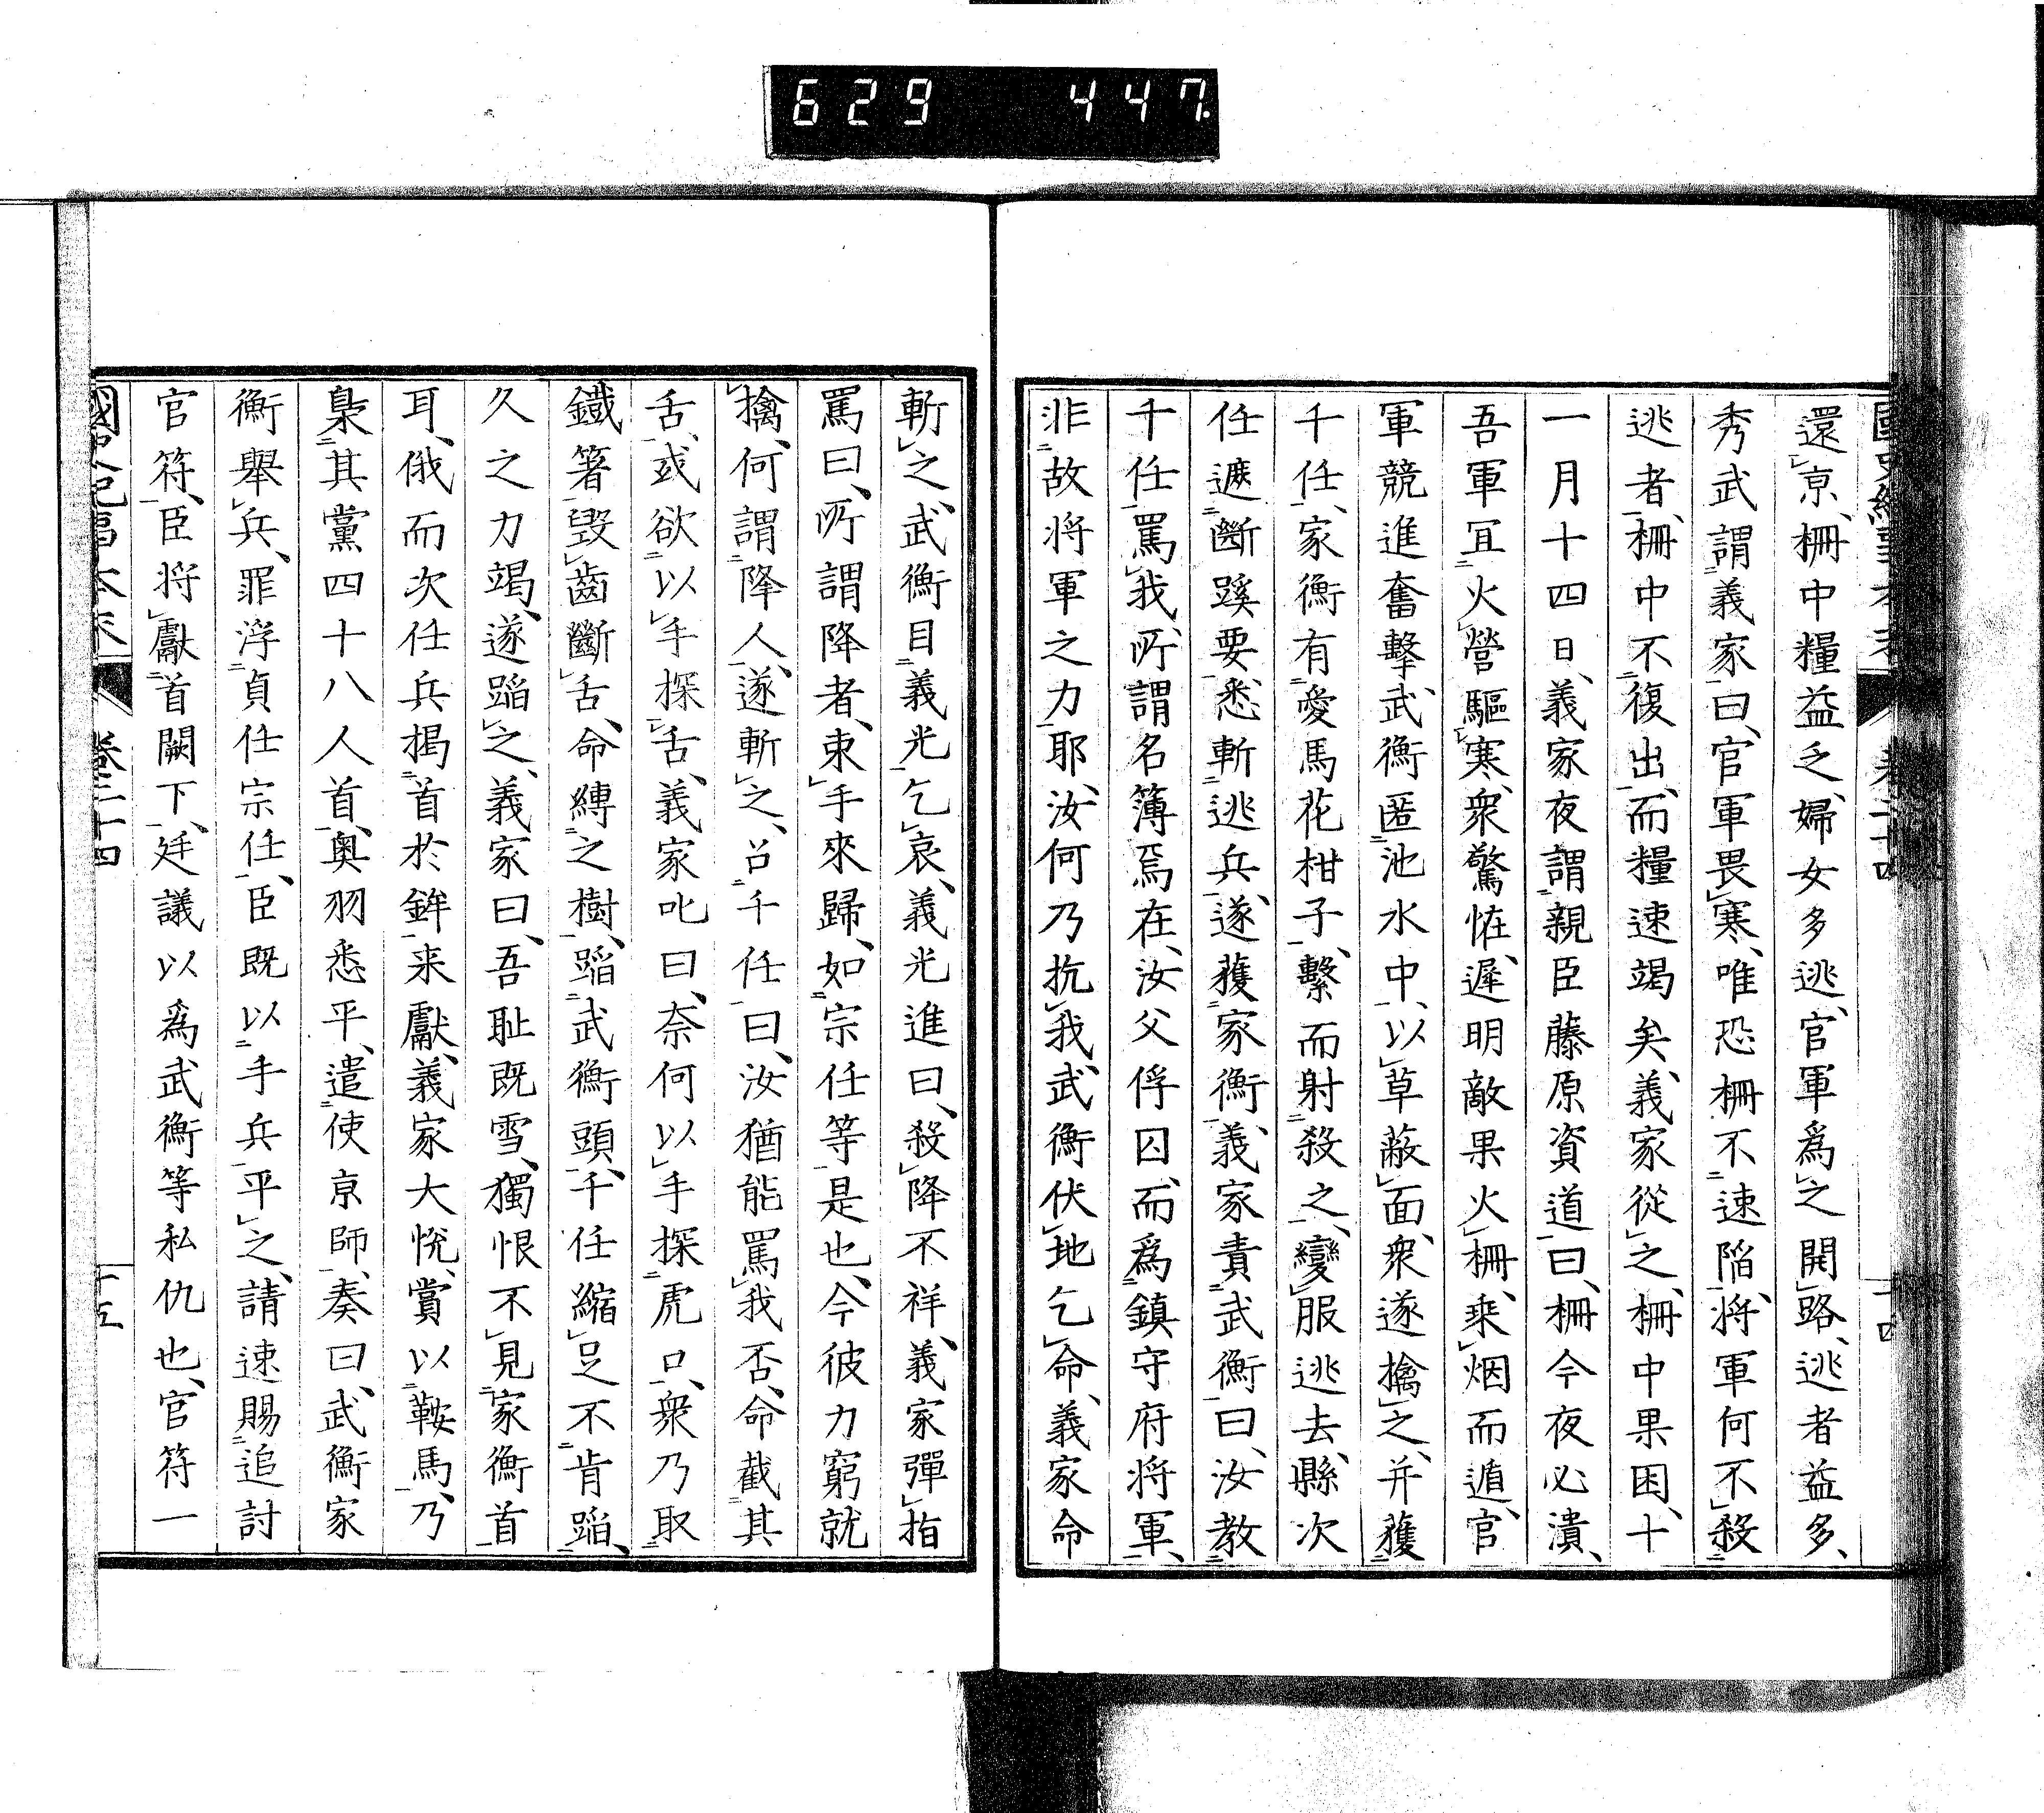 629 447.
還京、柵中糧益乏、婦女多逃、官軍為之開路、逃者益多、
秀武謂義家曰、官軍畏寒、唯恐柵不速陷、将軍何不殺
逃者、柵中不復出、而糧速竭矣、義家從之、柵中果困、十
一月十四日、義家夜謂親臣藤原資道曰、柵今夜必潰、
吾軍冝火營驅寒、衆驚恠、遲明敵果火柵、乗烟而遁、官
軍競進奮擊、武衡匿池水中、以草蔽面、衆遂擒之、并獲
千任、家衡有愛馬花柑子、繫而射殺之、變服逃去、縣次
任遮斷蹊要、悉斬逃兵、遂獲家衡、義家責武衡曰、汝教
千任罵我、所謂名簿焉在、汝父俘囚、而為鎮守府将軍、
非故将軍之力耶、汝何乃抗我、武衡伏地乞命、義家命
斬之、武衡目義光乞哀、義光進曰、殺降不祥、義家彈指
罵曰、所謂降者、束手來歸、如宗任等是也、今彼力窮就
擒、何謂降人、遂斬之、召千任曰、汝猶能罵我否、命截其
舌、或欲以手探舌、義家叱曰、奈何以手探虎口、衆乃取
鐵箸毀齒斷舌、命縛之樹、蹈武衡頭、千任縮足不肯蹈、
久之力竭、遂蹈之、義家曰、吾耻既雪、獨恨不見家衡首
耳、俄而次任兵揭首於鉾来獻、義家大悅、賞以鞍馬、乃
梟其黨四十八人首、奥羽悉平、遣使京師、奏曰、武衡家
衡舉兵、罪浮貞任宗任、臣既以手兵平之、請速賜追討
官符、臣将獻首闕下、廷議以為武衡等私仇也、官符一
國史紀事本末 卷二十四 十五